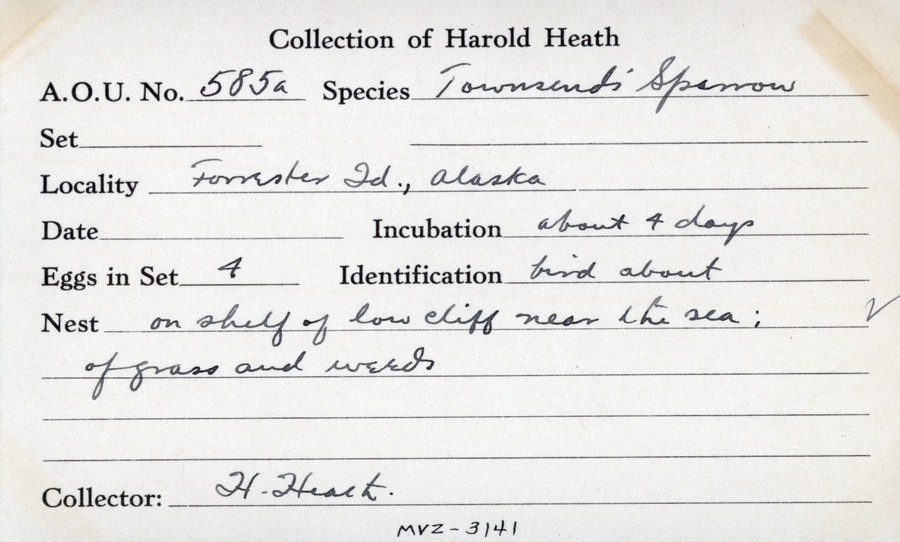 Collection of Harold Heath
A.O.U. No. 585a Species Townsend's Sparrow
Set
Locality Forrester Id., Alaska
Date Incubation about 4 days
Eggs in Set 4 Identification bird about
Nest on shelf of low cliff near the sea ; ✓
of grass and weeds
Collector: H. Heath.
MVZ-3141